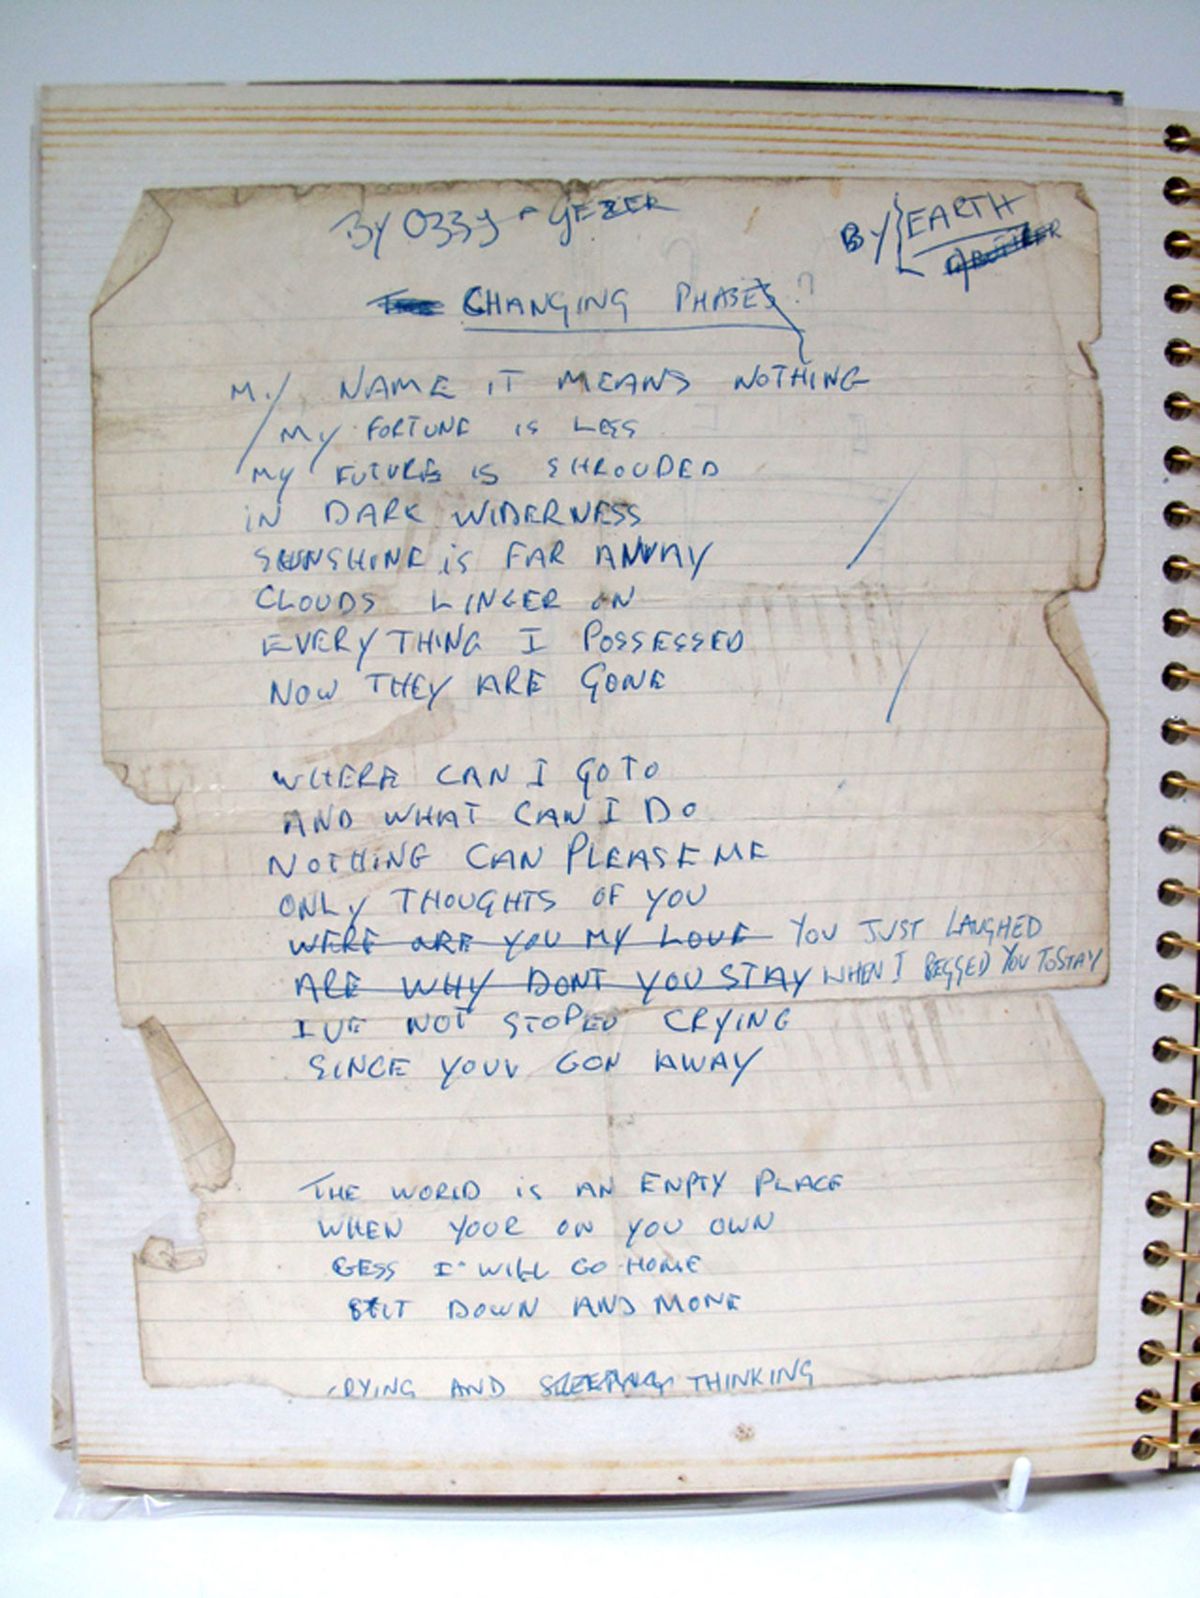 By Ozzy + GEZER
BY EARTH
G BUTLER
CHANGING PHASES ?
MY NAME IT MEANS NOTHING
MY FORTUNE IS LESS
MY FUTURE IS SHROUDED
IN DARK WIDERNESS
SUNSHINE is FAR AWAY
CLOUDS LINGER ON
EVERYTHING I POSSESSED
NOW THEY ARE GONE
WHERE CAN I GO TO
AND WHAT CAN I DO
NOTHING CAN PLEASE ME
ONLY THOUGHTS OF YOU
WERE ARE YOU MY LOVE YOU JUST LAUGHED
ARE WHY DONT YOU STAY WHEN I BEGGED YOU TO STAY
IVE NOT STOPED CRYING
SINCE YOUV GON AWAY
THE WORLD is AN EMPTY PLACE
WHEN YOUR ON YOU OWN
GESS I WILL GO HOME
SIT DOWN AND MONE
CRYING AND THINKING